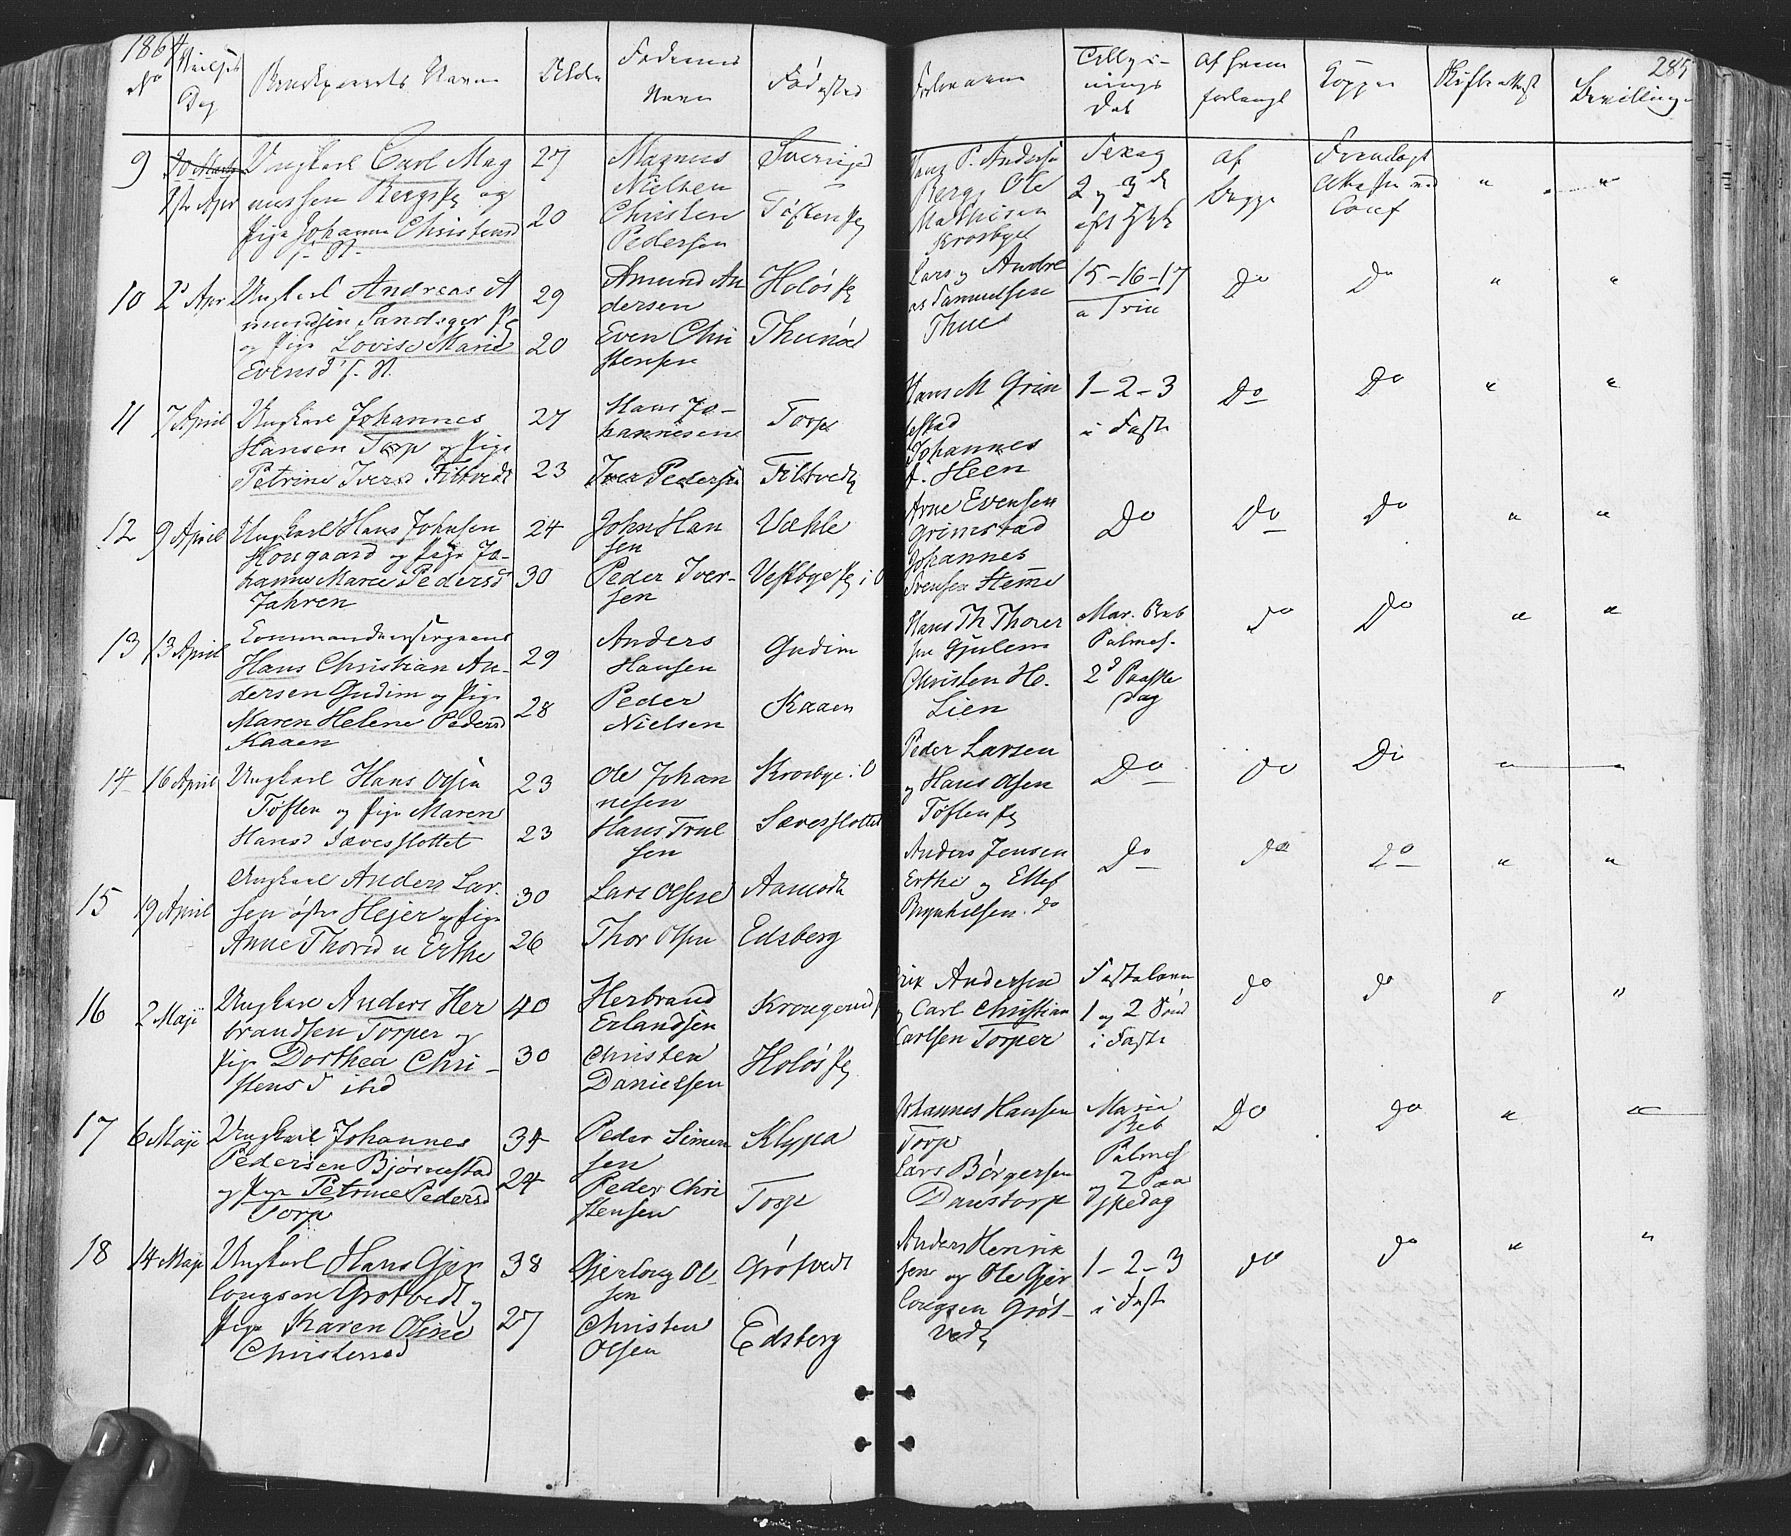 1864
No
Vielses
Dag
Brudeparrets Navn
Alder
Fædrenes
Navn
Fødested
Forlovere
Tillys-
nings
Dat
Af hvem
forlangt
Kopper
Skiftes Attest
Bevilling
285
9
20 Marts
1ste Apr
Ungkarl Carl Mag
nussen Bergspl og
Pige Johanne Christensd
s. St.
27
20
Magnus
Nielsen
Christen
Pedersen
Sverige
Toftenspl
Hans P. Andersen
Berg, Ole
Mathisen
Krosbye
2 og 3 d
af
begge
"
"
10
2 Apr
Ungkarl Andreas A
mundsen Sandager Pl
og Pige Lovise Marie
Evensd s. St.
29
20
Amund An
dersen
Even Chri
stensen
Holøs Pl
Thunøe
Lars og Andre
as Samuelsen
Thues
15-16-17
a Trin
Do
Do
"
"
11
7 April
Ungkarl Johannes
Hansen Torp og Pige
Petrine Iversd Filtvedt
27
23
Hans Jo-
hannesen
Iver Pedersen
Torp
Filtvedt
Hans M Grim
sestad
Johannes
J. Heen
1-2-3
i Faste
Do
Do
"
"
12
9 April
Ungkarl Hans Johnsen
Hougaard og Pige Jo-
hanne Maree Pedersd
Jahren
24
30
John Han
sen
Peder Iver-
sen
Væhle
Vestbye Pl i O
Arne Evensen
Grimstad
Johannes
Svensen Heme
Do
Do
Do
"
"
13
13 April
Commandeersergeant
Hans Christian An-
dersen Gudim og Pige
Maren Helene Pedersd
Kaaen
29
28
Anders
Hansen
Peder
Nielsen
Gudim
Kaaen
Hans Th Thorer
sen Gjulem
Christen He.
Lien
Mar. Beb
Palmes.
2d Paaske
Dag
Do
Do
"
"
14
16 April
Ungkarl Hans Olsen
Toften og Pige Maren
Hansd Sævesslottet
23
23
Ole Johan
nesen
Hans True
sen
Krosbye i O
Sævesslottet
Peder Larsen
og Hans Olsen
Toftenspl
Do
Do
Do
"
"
15
19 April
Ungkarl Anders Lar-
sen østre Hejer og Pige
Anne Thorsd n Erthe
30
26
Lars Olsen
Thor Olsen
Aamodt
Edsberg
Anders Jensen
Erthe og Ellef
Brynhilsen. do
Do
Do
Do
"
"
16
2 Maji
Ungkarl Anders Her
brandsen Torper og
Pige Dorthea Chri-
stensd ibid
40
30
Herbrand
Erlandsen
Christen
Danielsen
Holøs Pl
Erik Andersen
og Carl Christian
Carlsen Torper
Fastelavn
1 og 2 Sønd
i Faste
Do
Do
"
"
17
6 Maji
Ungkarl Johannes
Pedersen Bjørnestad
og Pige Petrine Pedersd
Torp
34
24
Peder Simen
sen
Peder Chri
stensen
Klypa
Torp
Johannes Hansen
Torp
Lars Børgersen
Danstorp
Maria
Beb
Palmes
og 2 Paa
skedag
Do
Do
"
"
18
14 Maji
Ungkarl Hans Gjer
lougsen Grøtvedt og
Pige Karen Oline
Christensd
38
27
Gjerloug Ol-
sen
Christen
Olsen
Grøtvedt
Edsberg
Anders Henrik
sen og Ole Gjer
lougsen Grøt-
vedt
1-2-3
i Faste
Do
Do
"
"